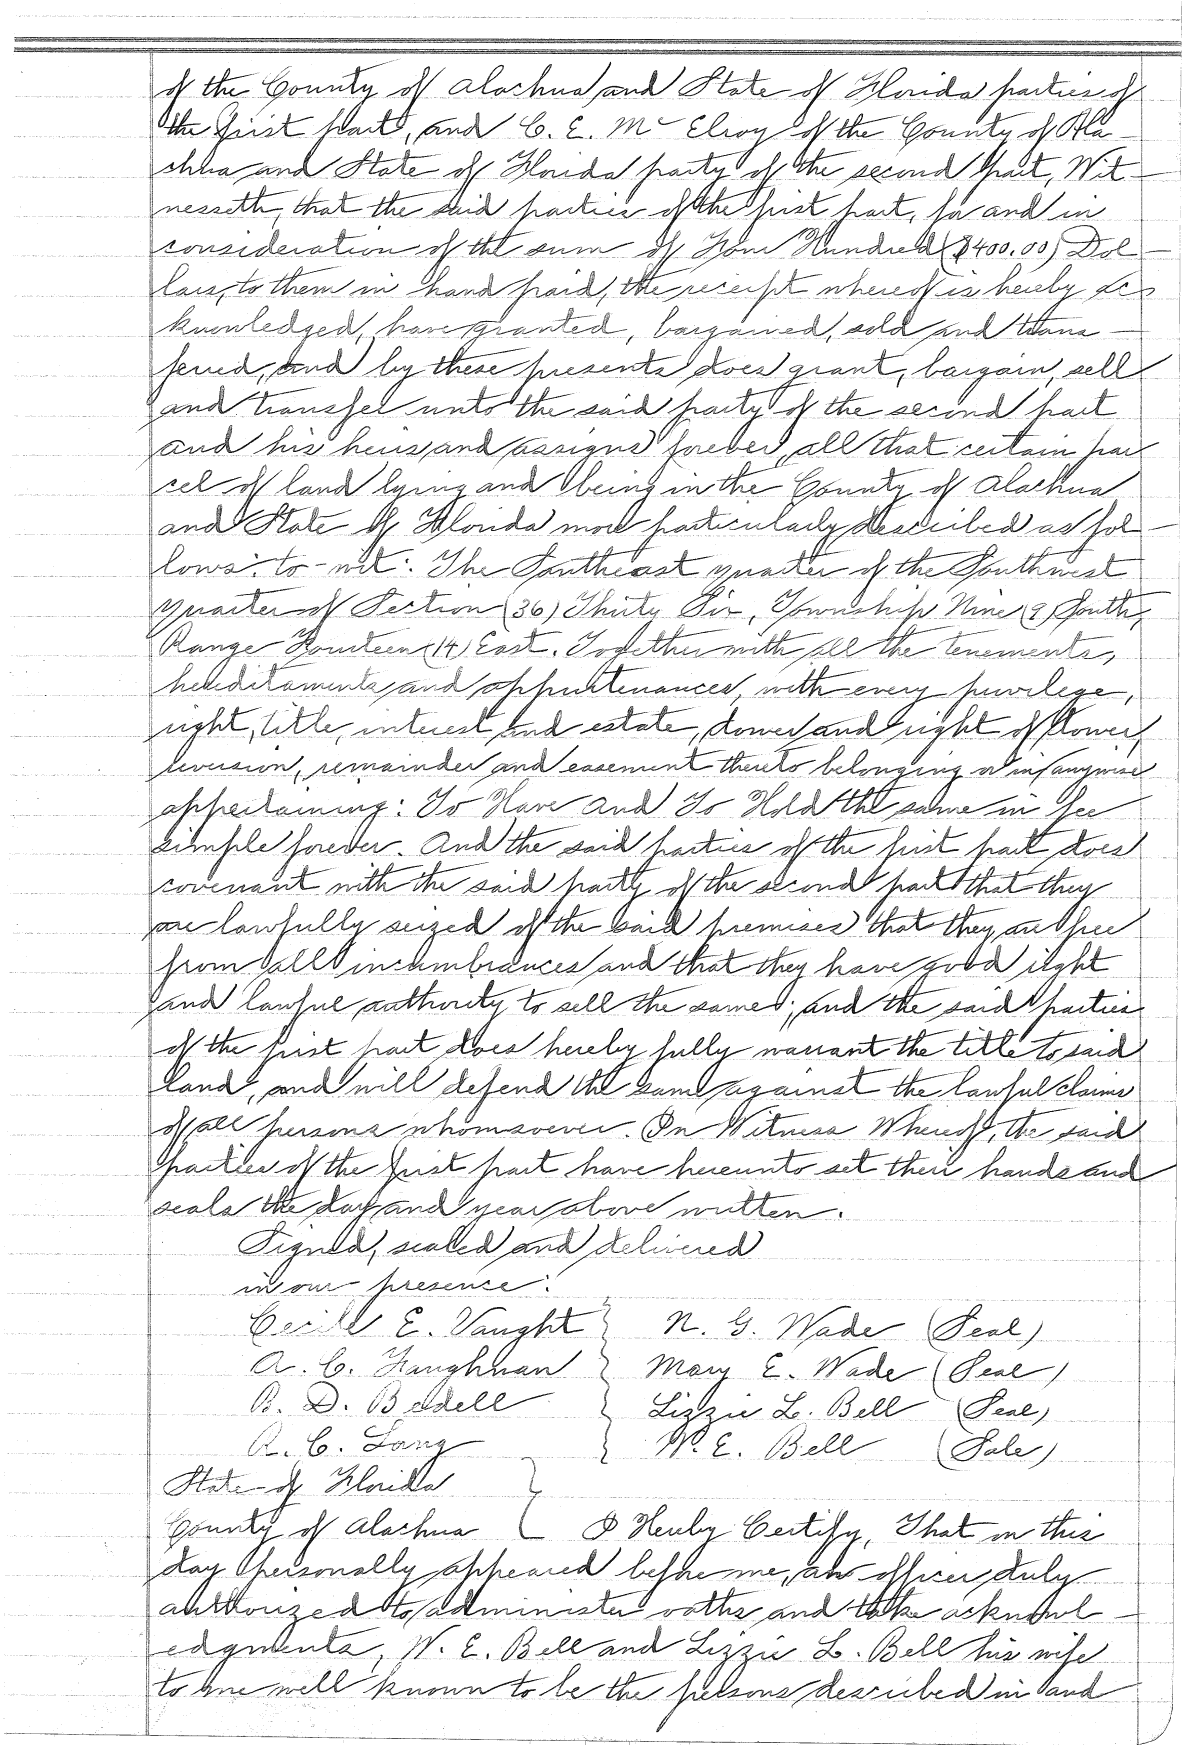 of the County of Alachua and State of Florida parties of
the first part, and C. E. Mc Elroy of the County of Ala-
chua and State of Florida party of the second part, Wit-
nesseth, that the said parties of the first part, for and in
consideration of the sum of Four Hundred ($400.00) Dol-
lars, to them in hand paid, the receipt whereof is hereby ac-
knowledged, have granted, bargained, sold and trans-
ferred, and by these presents does grant, bargain, sell
and transfer unto the said party of the second part
and his heirs and assigns forever, all that certain par
cel of land lying and being in the County of Alachua
and State of Florida more particularly described as fol-
lows: to-wit: The Southeast quarter of the Southwest
quarter of Section (36) Thirty Six, Township Nine (9) South,
Range Fourteen (14) East. Together with all the tenements,
hereditaments and appurtenances, with every privilege,
right, title, interest and estate, dower and right of dower,
reversion, remainder and easement thereto belonging or in anywise
appertaining: To Have and To Hold the same in fee
simple forever. And the said parties of the first part does
covenant with the said party of the second part that they
are lawfully seized of the said premises that they are free
from all incumbrances and that they have good right
and lawful authority to sell the same; and the said parties
of the first part does hereby fully warrant the title to said
land, and will defend the same against the lawful claims
of all persons whomsoever. In Witness Whereof, the said
parties of the first part have hereunto set their hands and
seals the day and year above written.
Signed, sealed and delivered
in our presence:
Cecile E. Vaught } N. G. Wade (Seal)
A. C. Faughnan } Mary E. Wade (Seal)
B. D. Bedell } Lizzie L. Bell (Seal)
A. C. Lang } W. E. Bell (Sale)
State of Florida }
County of Alachua } I Hereby Certify, That on this
day personally appeared before me, an officer duly
authorized to administer oaths and take acknowl-
edgments, W. E. Bell and Lizzie L. Bell his wife
to me well known to be the persons described in and